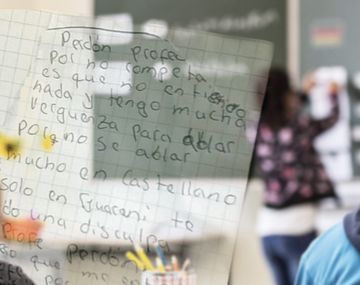 Perdón profe
por no completa
es que no entiendo
nada y tengo mucha
verguenza para ablar
porq no se ablar
mucho en castellano
solo en Guarani te
do una disculpa
Profe perdon